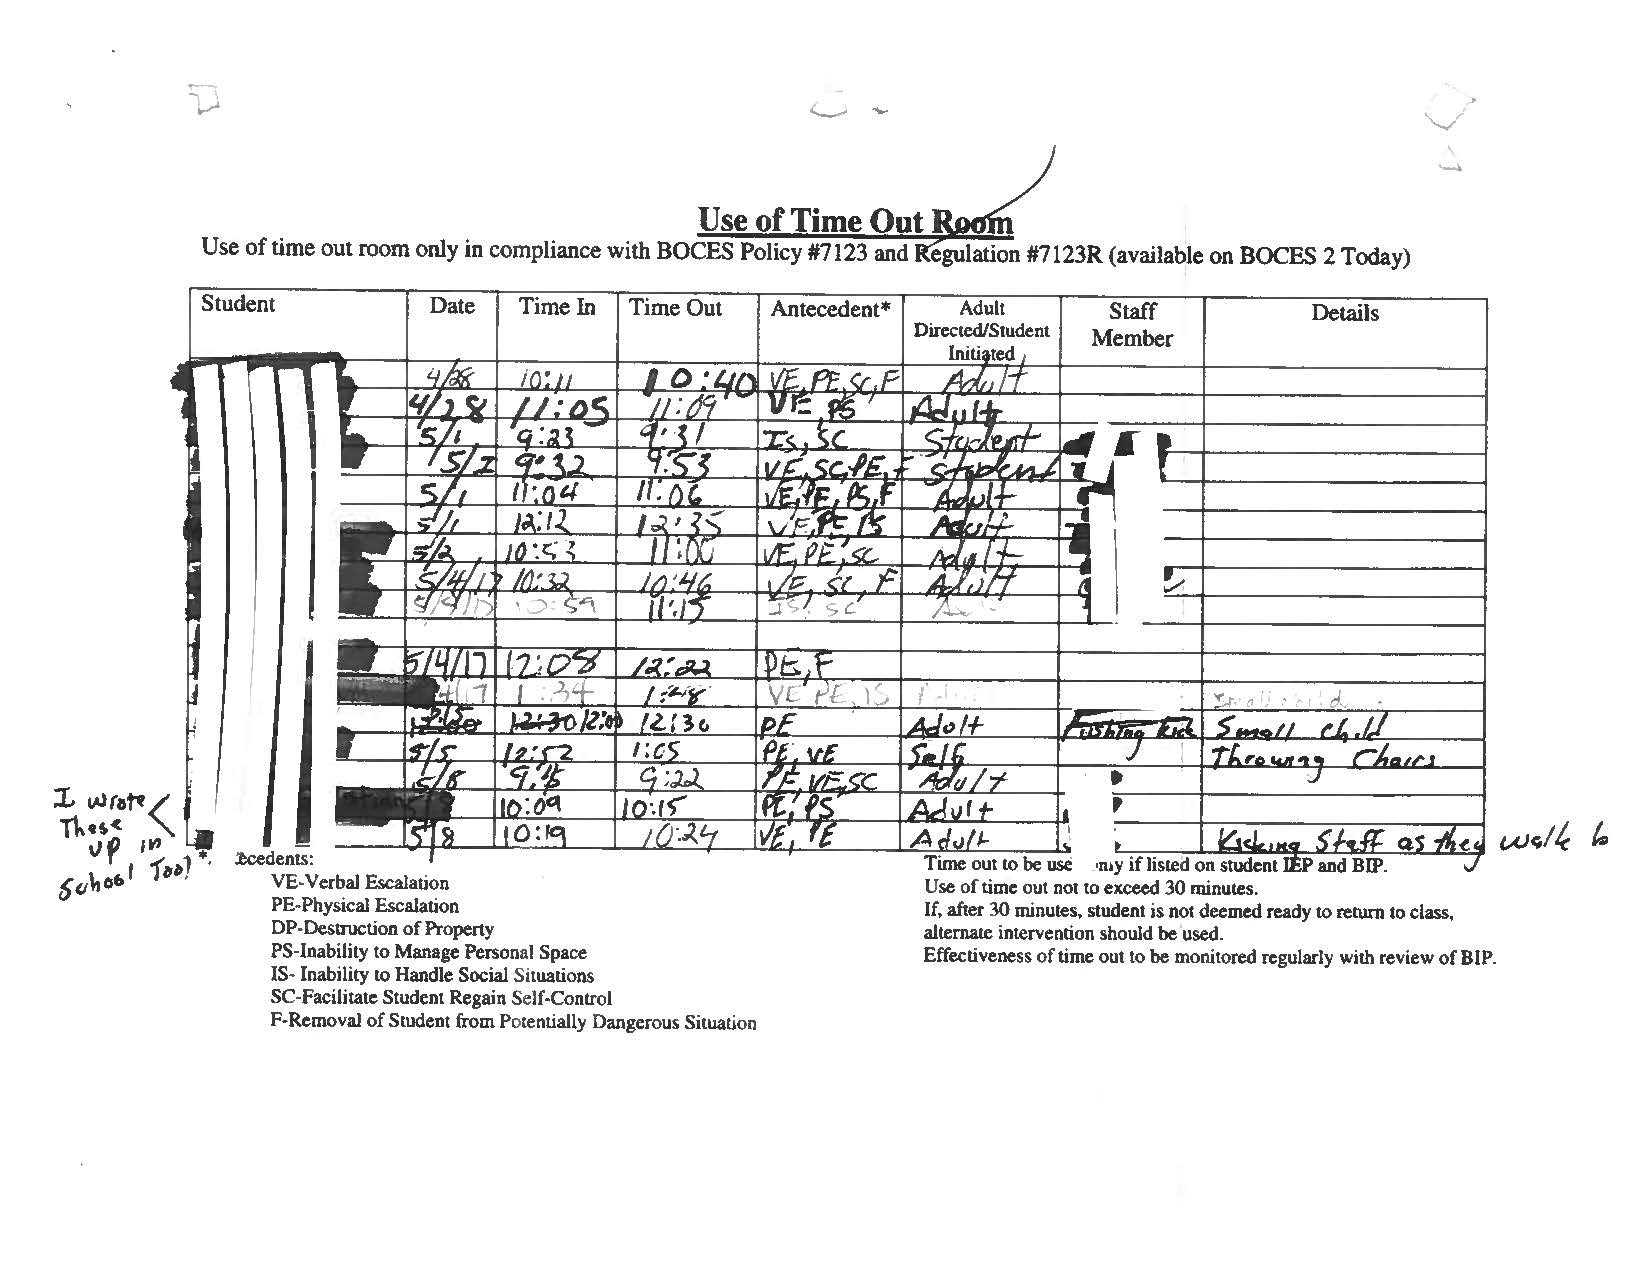 Use of Time Out Room
Use of time out room only in compliance with BOCES Policy #7123 and Regulation #7123R (available on BOCES 2 Today)
Student Date Time In Time Out Antecedent* Adult Directed/Student Initiated Staff Member Details
4/28 10:11 10:40 VE, PE, SC, F Adult
4/28 11:05 11:09 VE, PS Adult
5/1 9:23 9:31 Is, SC Student
5/1 9:32 9:53 VE, SC, PE, F Student
5/1 11:04 11:06 VE, PE, PS, F Adult
5/1 12:12 12:35 VE, PE, IS Adult
5/2 10:53 11:00 VE, PE, SC Adult
5/4/17 10:32 10:46 VE, SC, F Adult
10:59 11:15 IS, SC
5/4/17 12:08 12:22 PE, F
4/17 1:34 1:48 VE PE, IS Small child
5/5 12:30 12:00 12:30 PE Adult Small Child
5/5 12:52 1:05 PE, VE Self Throwing Chairs
5/8 9:22 PE, VE, SC Adult
5/8 10:09 10:15 PE, PS Adult
5/8 10:19 10:24 VE, PE Adult Kicking Staff as they walk to
I wrote
These
up in
School Tool
*. ecedents:
VE-Verbal Escalation
PE-Physical Escalation
DP-Destruction of Property
PS-Inability to Manage Personal Space
IS- Inability to Handle Social Situations
SC-Facilitate Student Regain Self-Control
F-Removal of Student from Potentially Dangerous Situation
Time out to be use if listed on student IEP and BIP.
Use of time out not to exceed 30 minutes.
If, after 30 minutes, student is not deemed ready to return to class,
alternate intervention should be used.
Effectiveness of time out to be monitored regularly with review of BIP.